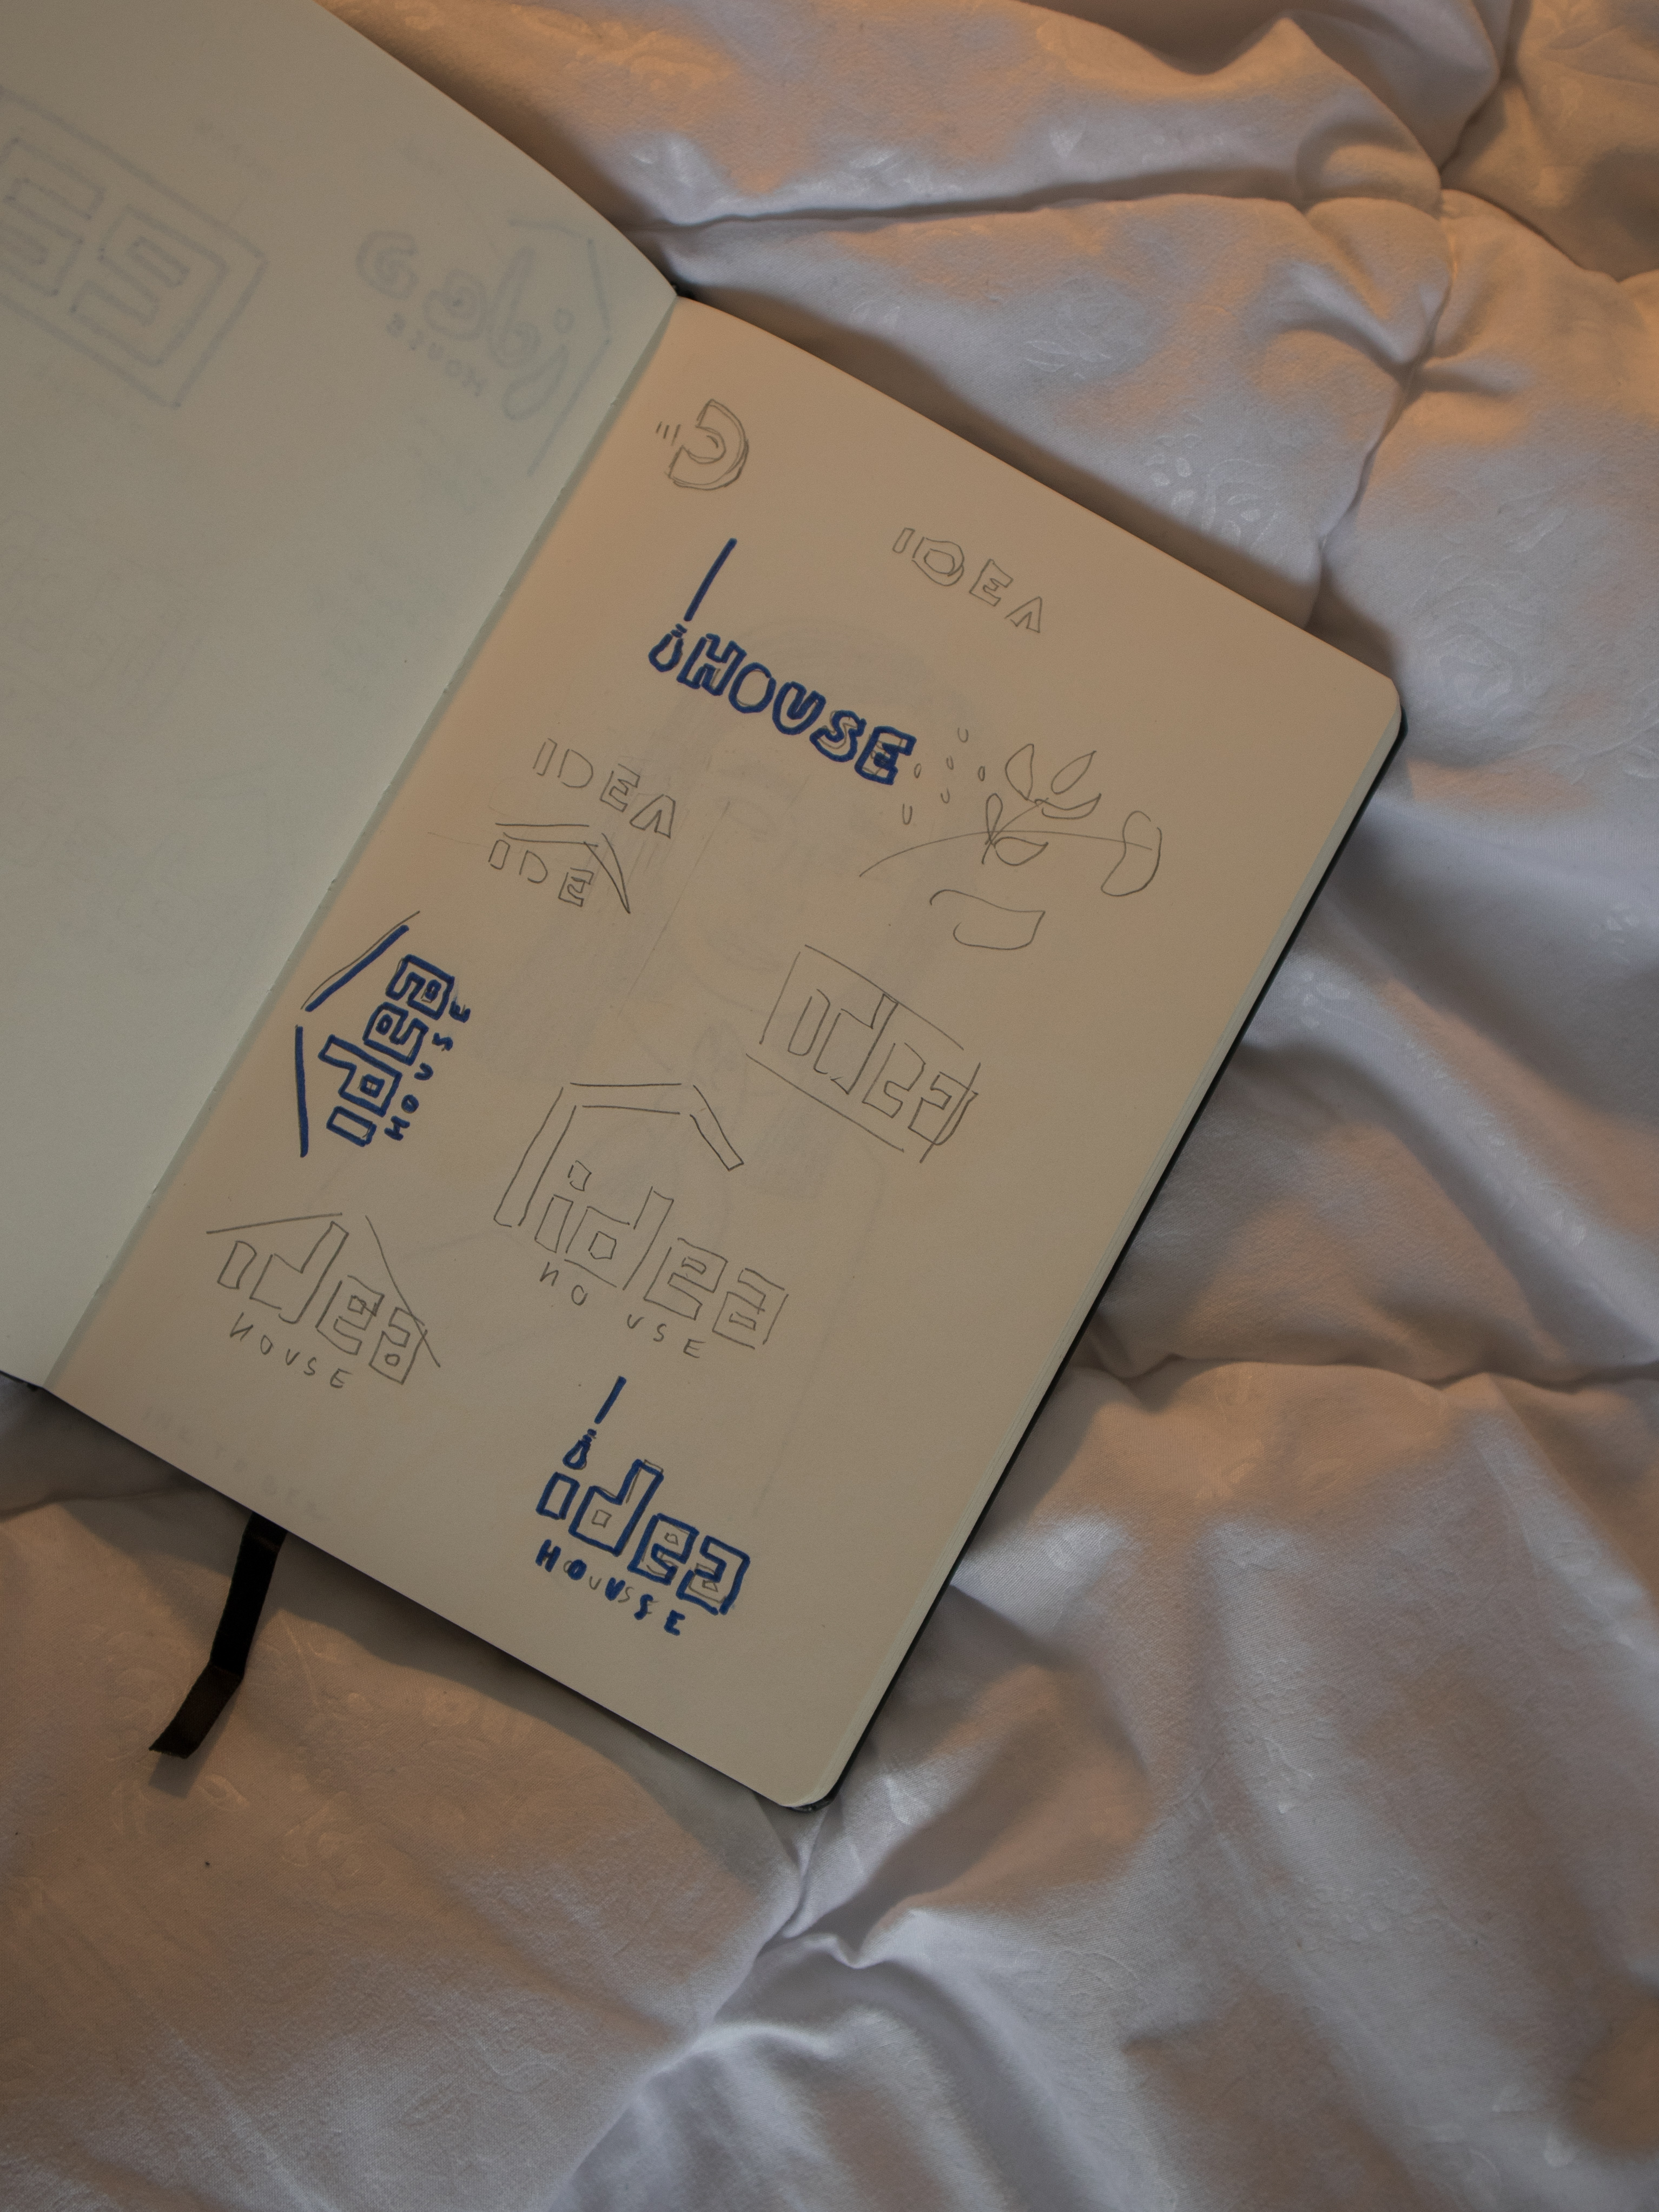 IDEA
HOUSE
IDEA
IDE
idea
idea
HOUSE
idea
HOUSE
idea
HOUSE
idea
HOUSE